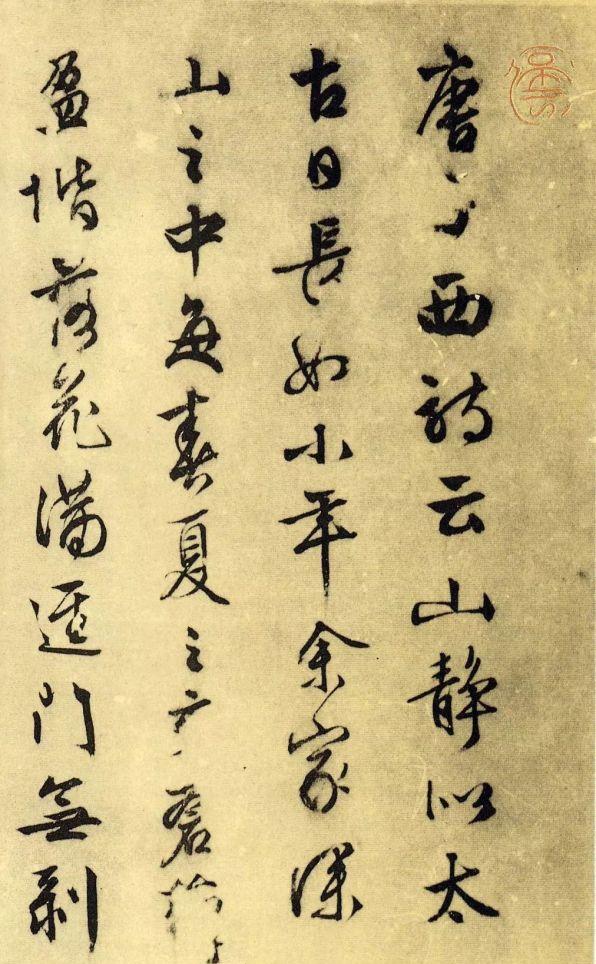 唐子西詩云山靜似太
古日長如小年余家深
山之中每春夏之交蒼
盈堦落花滿逕門無剝